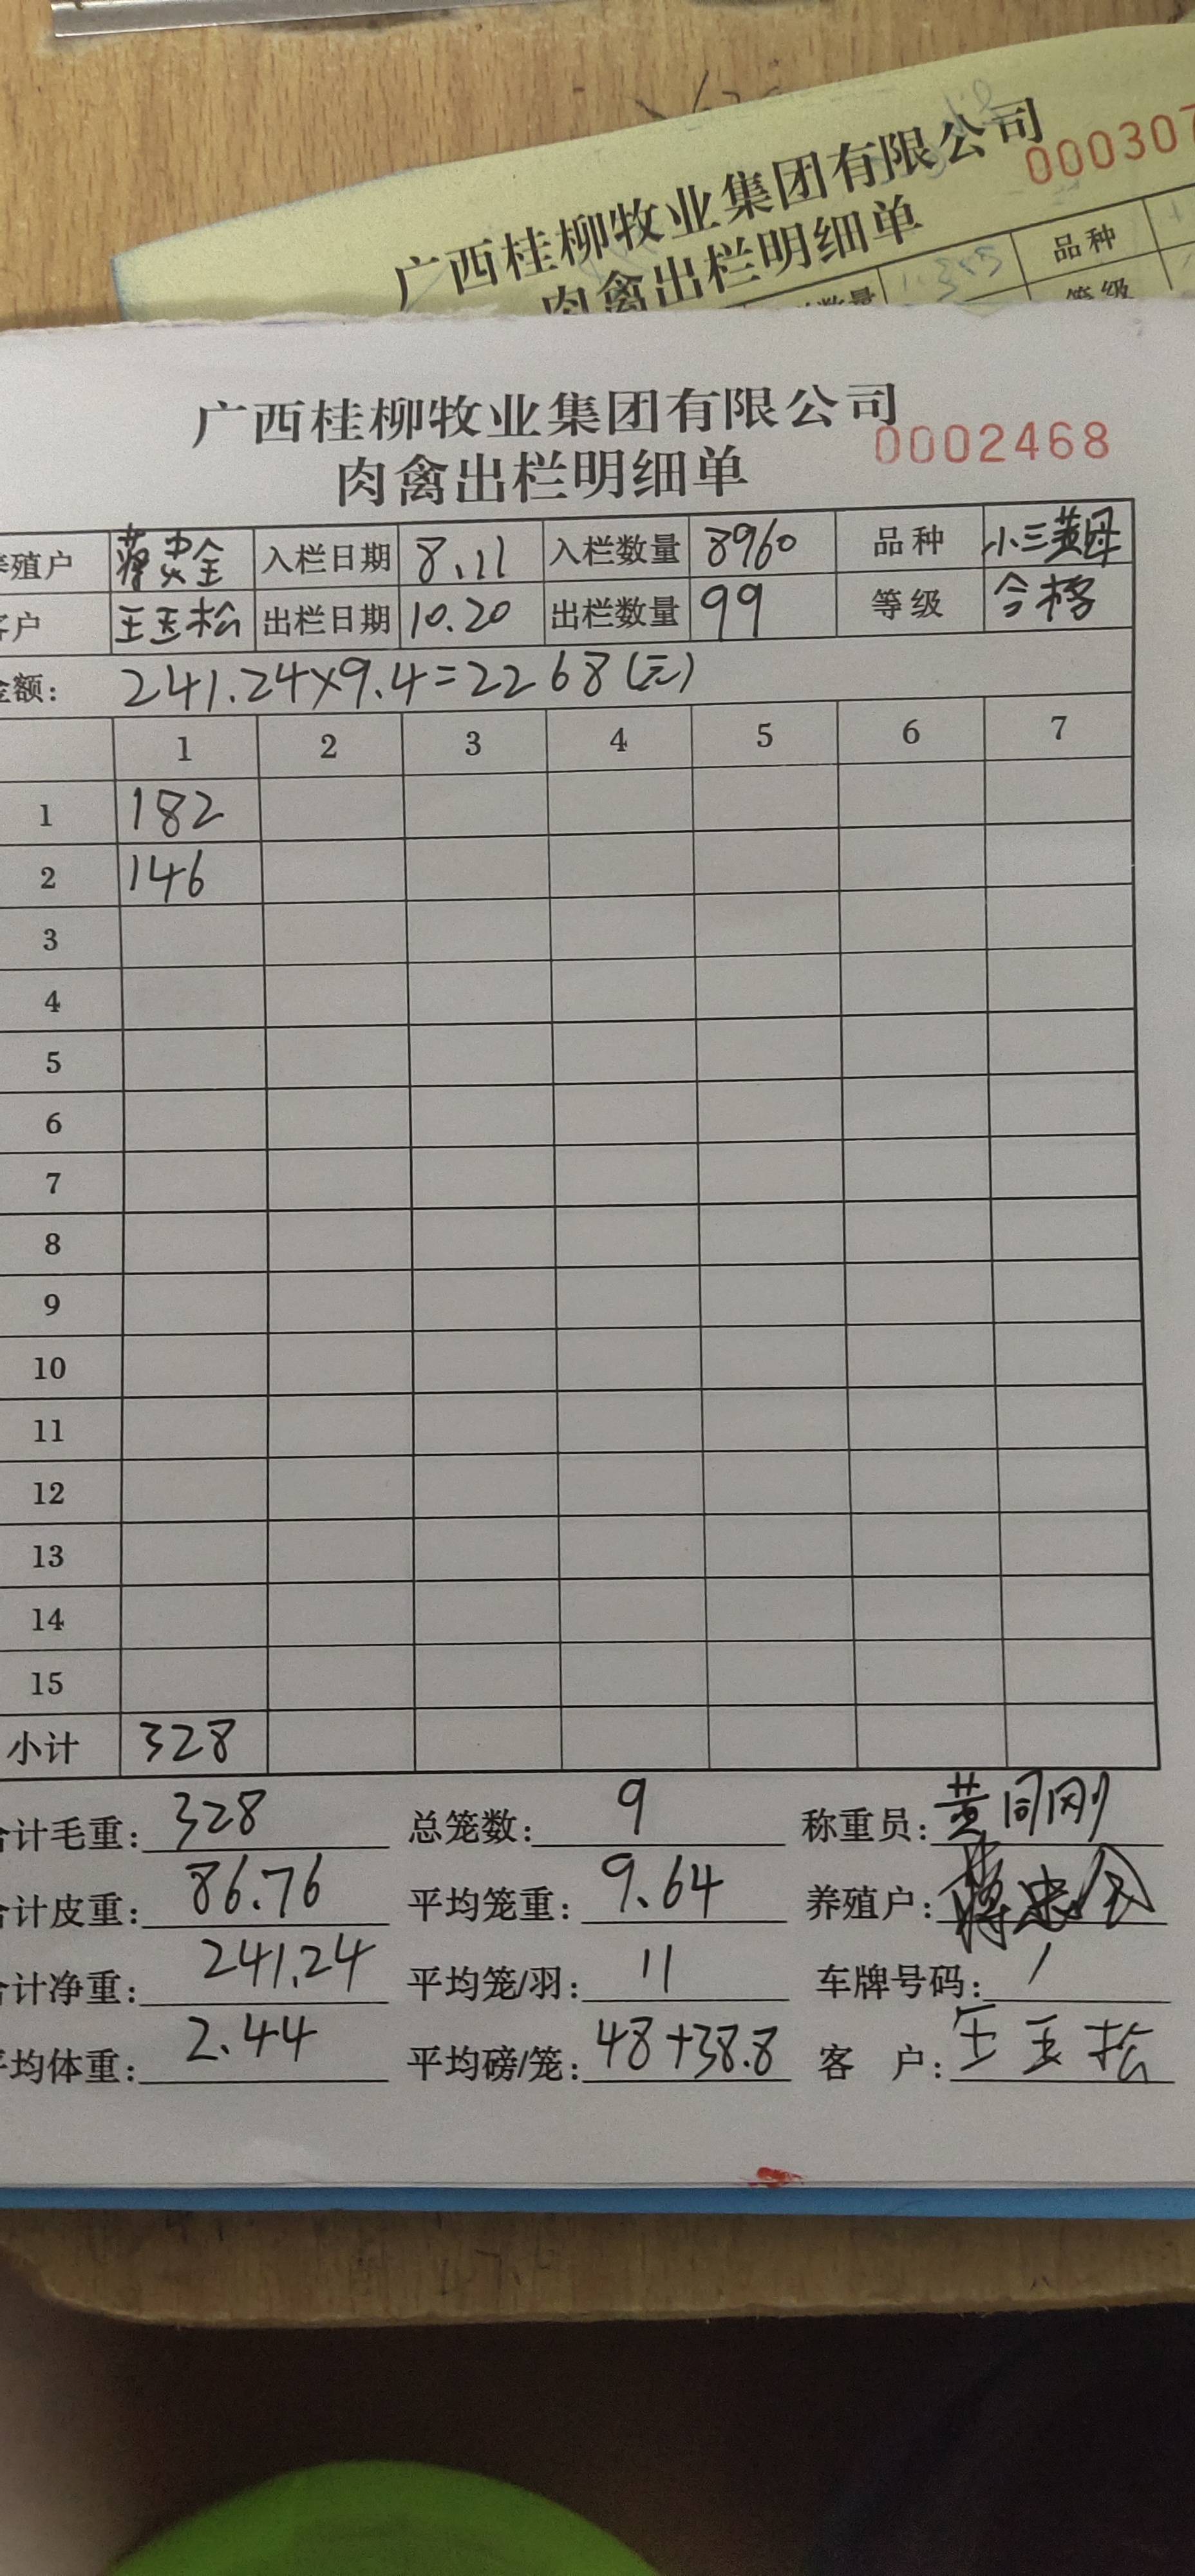 广西桂柳牧业集团有限公司 000307
肉禽出栏明细单
品种
等级
广西桂柳牧业集团有限公司
肉禽出栏明细单 0002468
殖户 蒋忠全 入栏日期 8.11 入栏数量 8960 品种 小三黄母
户 王玉松 出栏日期 10.20 出栏数量 99 等级 合格
额: 241.24×9.4=2268(元)
1 2 3 4 5 6 7
1 182
2 146
3
4
5
6
7
8
9
10
11
12
13
14
15
小计 328
计毛重: 328 总笼数: 9 称重员: 黄同刚
计皮重: 86.76 平均笼重: 9.64 养殖户: 蒋忠全
计净重: 241.24 平均笼/羽: 11 车牌号码: /
均体重: 2.44 平均磅/笼: 48+38.8 客户: 王玉松